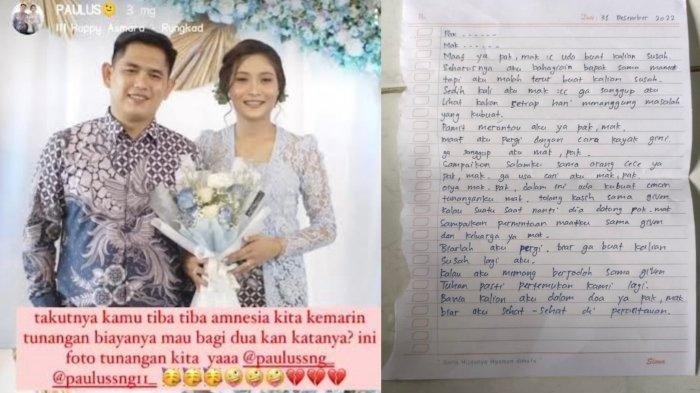 PAULUS🫠 3 mg
Happy Asmara · Rungkad
takutnya kamu tiba tiba amnesia kita kemarin
tunangan biayanya mau bagi dua kan katanya? ini
foto tunangan kita yaaa @paulussng_
@paulussng11_ 🥳🥳🥳🤪🤪🤪💔💔💔
No.
Date: 31 Desember 2022
Pak ......
Mak ......
Maaf ya pak, mak :(( udo buat kalian susah.
Seharusnya aku bahagiain bapak sama mamak
tapi aku malah terus buat kalian susah.
Sedih kali aku mak :(( ga sanggup aku
lihat kalian setiap hari menanggung masalah
yang kubuat.
Pamit merantau aku ya pak, mak.
maaf aku pergi dengan cara kayak gini.
ga sanggup aku mak, pak.
Sampaikan salamku sama orang cece ya
pak, mak. ga usa cari aku mak, pak.
oiya mak, pak, dalam ini ada kubuat cincin
tunanganku mak. tolong kasih sama given
kalau suatu saat nanti dia datang pak, mak
Sampaikan permintaan maafku sama given
dan keluarga ya mak.
Biarlah aku pergi, biar ga buat kalian
susah lagi aku.
kalau aku memang berjodoh sama given
Tuhan pasti pertemukan kami lagi.
Bawa kalian aku dalam doa ya pak, mak
biar aku sehat-sehat di perantauan.